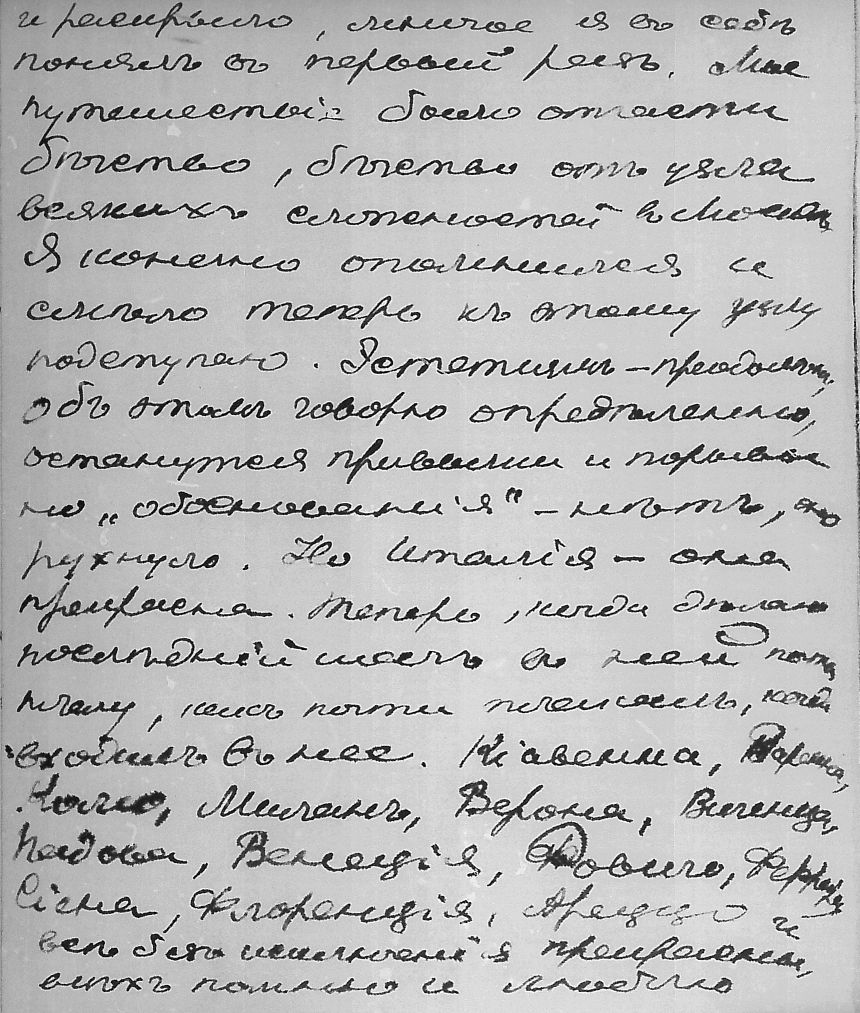 и раскрыло, многое я въ себѣ
понялъ въ первый разъ. Мое
путешествіе было отчасти
бѣгство, бѣгство отъ узла
всякихъ сложностей въ Москвѣ
Я конечно опомнился и
смѣло теперь къ этому узлу
подступаю. Эстетизмъ – преодолѣнъ,
объ этомъ говорю опредѣленно,
останутся привычки и порывы
но „обоснованія" – нѣтъ, оно
рухнуло. Но Италія – она
прекрасна. Теперь, когда дѣлаю
послѣдній шагъ въ ней почти
плачу, какъ почти плакалъ, когда
входилъ въ нее. Кіавенна, Варенна,
Комо, Миланъ, Верона, Виченца,
Падова, Венеція, Ровиго, Феррара,
Сіена, Флоренція, Ареццо и
всѣ безъ исключенія прекрасны,
всѣхъ помню и люблю